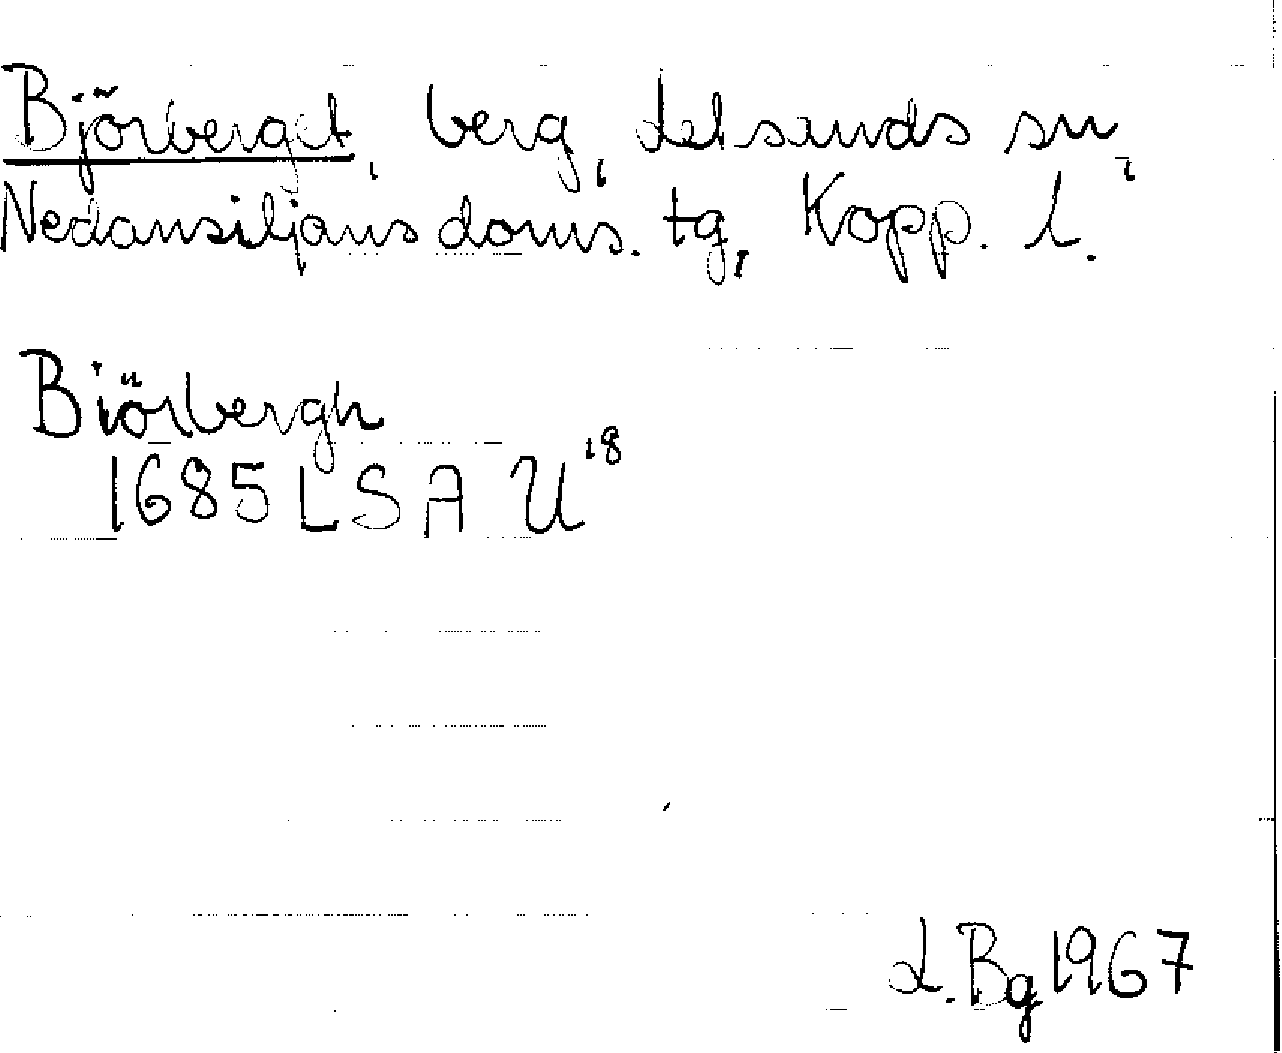 Björberget, berg, Leksands sn,
Nedansiljans doms. tg, Kopp. l.
Biörbergh
1685 LSA U¹⁸
L.Bg 1967